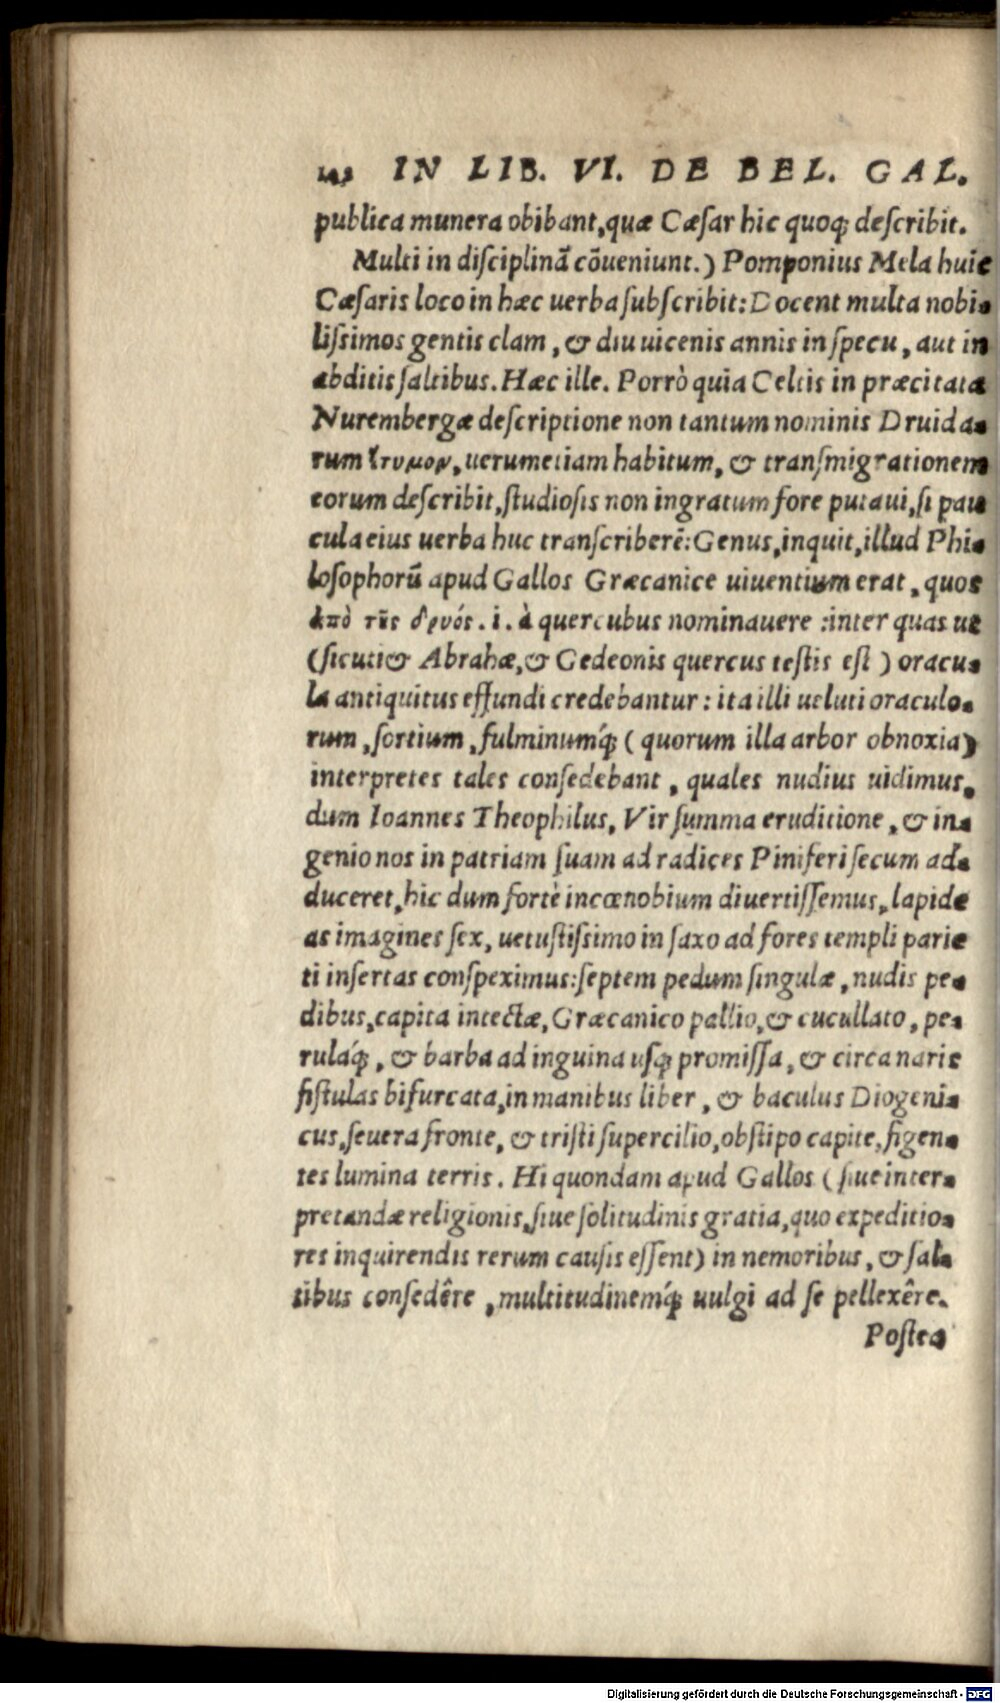 IN LIB. VI. DE BEL. GAL.
publica munera obibant, quæ Cæſar hic quoq; deſcribit.
Multi in diſciplinã cõueniunt.) Pomponius Mela huic
Cæſaris loco in hæc uerba ſubſcribit: Docent multa nobi-
liſsimos gentis clam, & diu uicenis annis in ſpecu, aut in
abditis ſaltibus. Hæc ille. Porrò quia Celtis in præcitata
Nurembergæ deſcriptione non tantum nominis Druida-
rum ἔτυμον, uerumetiam habitum, & tranſmigrationem
eorum deſcribit, ſtudioſis non ingratum fore putaui, ſi pau
cula eius uerba huc tranſcriberẽ: Genus, inquit, illud Phi-
loſophorũ apud Gallos Græcanice uiuentium erat, quos
ἀπὸ τῆς δρυός. i. à quercubus nominauere : inter quas ut
(ſicuti & Abrahæ, & Gedeonis quercus teſtis eſt) oracu-
la antiquitus effundi credebantur: ita illi ueluti oraculo-
rum, ſortium, fulminumq́; (quorum illa arbor obnoxia)
interpretes tales conſedebant, quales nudius uidimus,
dum Ioannes Theophilus, Vir ſumma eruditione, & in-
genio nos in patriam ſuam ad radices Piniferi ſecum ad-
duceret, hic dum fortè in cœnobium diuertiſſemus, lapide
as imagines ſex, uetuſtiſsimo in ſaxo ad fores templi parie
ti inſertas conſpeximus: ſeptem pedum ſingulæ, nudis pe-
dibus, capita intectæ, Græcanico pallio, & cucullato, pe-
rulaq́;, & barba ad inguina uſq; promiſſa, & circa naris
fiſtulas bifurcata, in manibus liber, & baculus Diogeni-
cus, ſeuera fronte, & triſti ſupercilio, obſtipo capite, figen-
tes lumina terris. Hi quondam apud Gallos (ſiue inter-
pretandæ religionis, ſiue ſolitudinis gratia, quo expeditio-
res inquirendis rerum cauſis eſſent) in nemoribus, & ſal-
tibus conſedêre, multitudinemq́; uulgi ad ſe pellexêre.
Poſtea
Digitalisierung gefördert durch die Deutsche Forschungsgemeinschaft - DFG